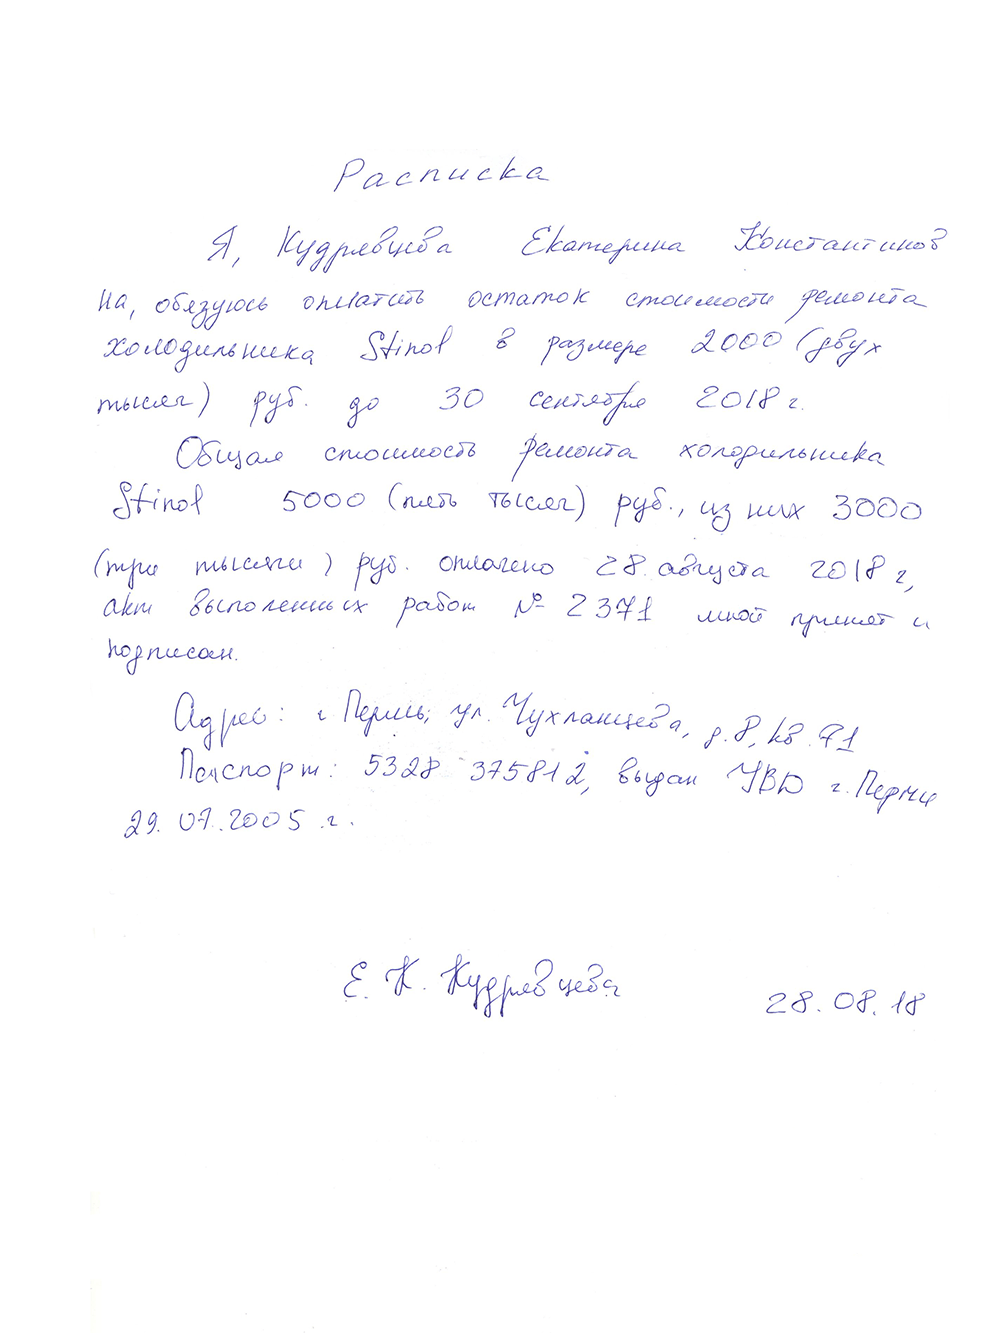 Расписка
Я, Кудрявцева Екатерина Константинов
на, обязуюсь оплатить остаток стоимости ремонта
холодильника Stinol в размере 2000 (двух
тысяч) руб. до 30 сентября 2018 г.
Общая стоимость ремонта холодильника
Stinol 5000 (пять тысяч) руб., из них 3000
(три тысячи) руб. оплачено 28 августа 2018 г,
акт выполенных работ № 2371 мной принят и
подписан.
Адрес: г Пермь, ул. Чухланцева, д. 8, кв. 71
Паспорт: 5328 375812, выдан УВД г. Перми
29.07.2005 г.
Е. К. Кудрявцева
28.08.18